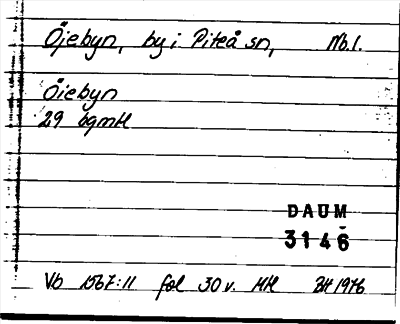 Öjebyn, by i Piteå sn, Nb.l.
Öiebyn
29 bgmH
DAUM
3146
Vb 1567:11 fol 30 v. HH BH 1976